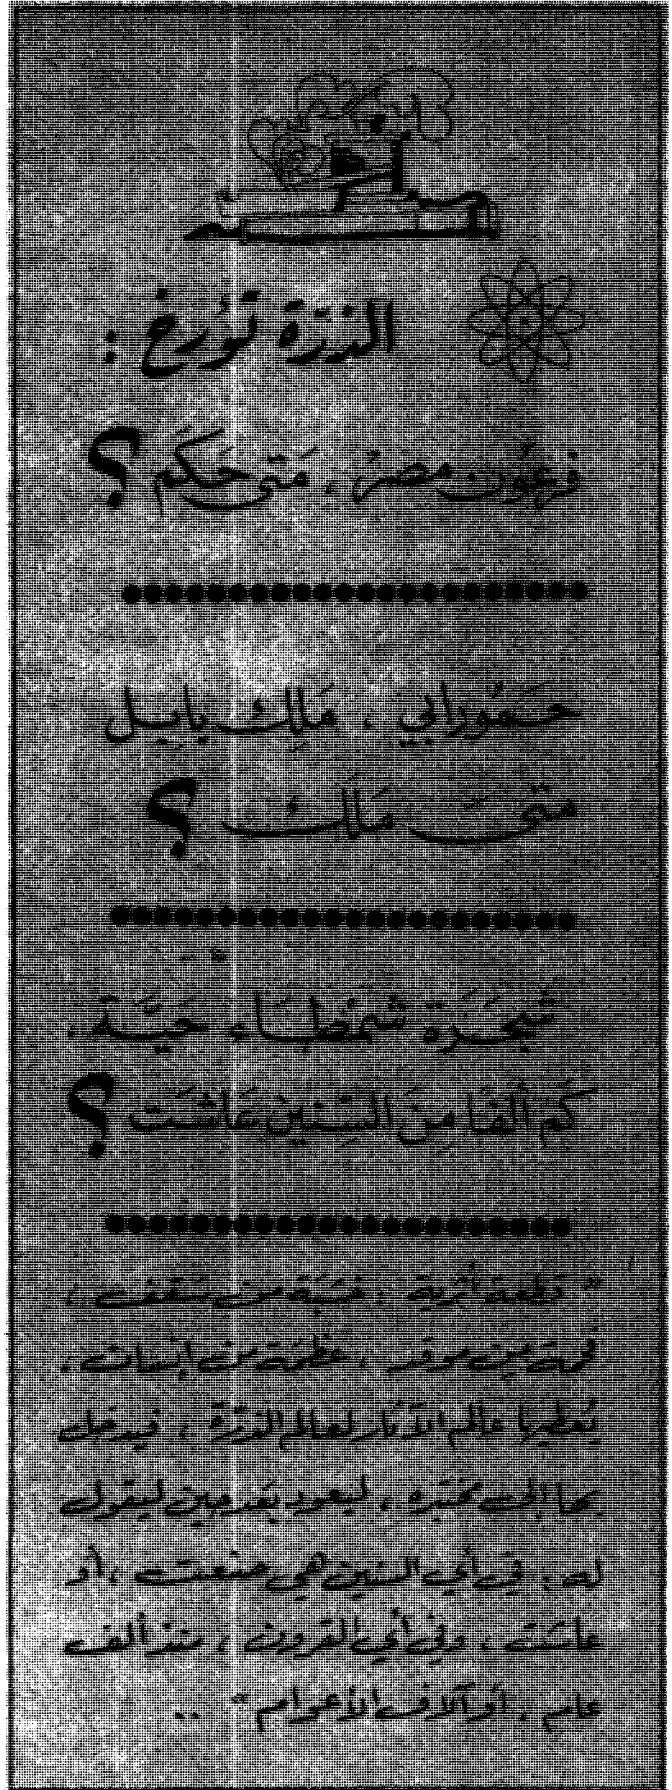 الذرّة تؤرخ :
فرعون مصر ، متى حكم ؟
حمورابي ، ملك بابل
متى ملك ؟
شجرة شمطاء حيّة ،
كم ألفا من السنين عاشت ؟
" قطعة أثرية ، خشبة من سقف ،
فحمة من موقد ، عظمة من إنسان ،
يُعطيها عالم الآثار لعالم الذرّة ، فيدخل
بها إلى مختبره ، ليعود بعد حين ليقول
له : في أي السنين هي صنعت ، أو
عاشت ، وفي أي القرون ، منذ ألف
عام ، أو آلاف الأعوام " ..